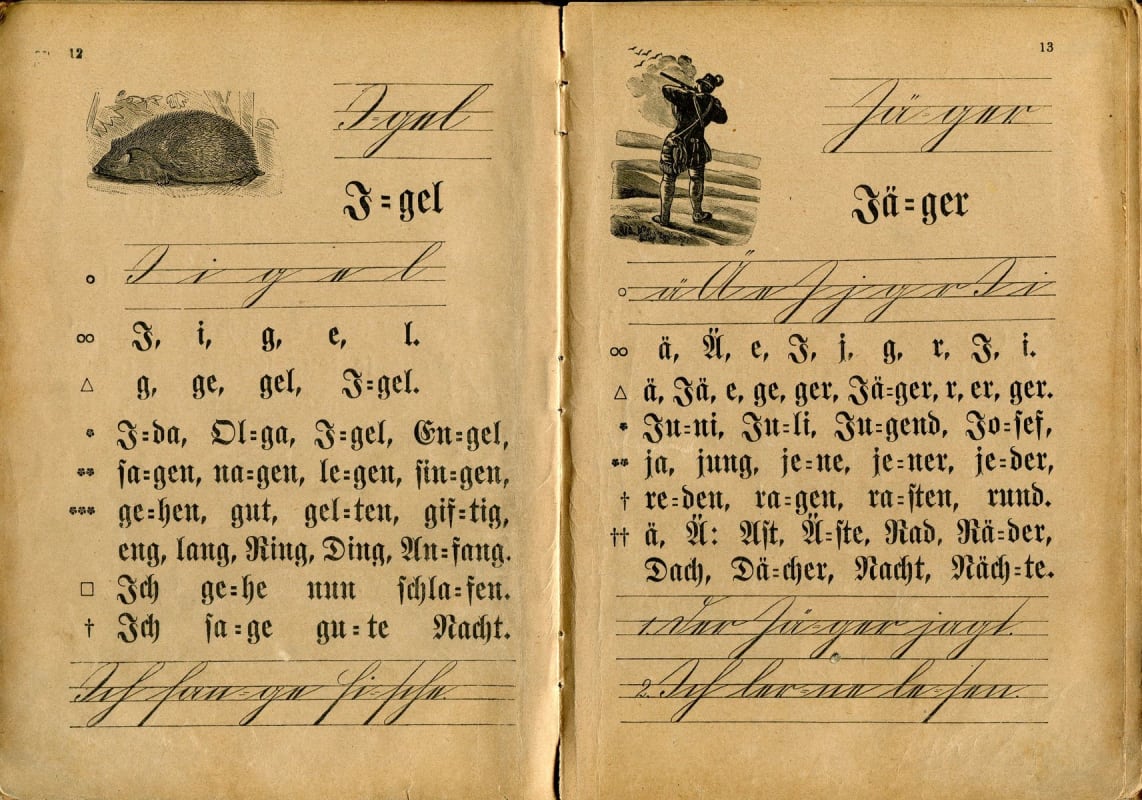 12
I-gel
I=gel
I i g e l
I, i, g, e, l.
g, ge, gel, I=gel.
I=da, Ol=ga, I=gel, En=gel,
sa=gen, na=gen, le=gen, sin=gen,
ge=hen, gut, gel=ten, gif=tig,
eng, lang, Ring, Ding, An=fang.
Ich ge=he nun schla=fen.
Ich sa=ge gu=te Nacht.
Ich fan-ge Fi-sche.
13
Jä-ger
Jä=ger
ä Ä e J j g r I i
ä, Ä, e, J, j, g, r, I, i.
ä, Jä, e, ge, ger, Jä=ger, r, er, ger.
Ju=ni, Ju=li, Ju=gend, Jo=sef,
ja, jung, je=ne, je=ner, je=der,
re=den, ra=gen, ra=sten, rund.
ä, Ä: Ast, Ä=ste, Rad, Rä=der,
Dach, Dä=cher, Nacht, Näch=te.
1. Der Jä-ger jagt.
2. Ich ler-ne le-sen.